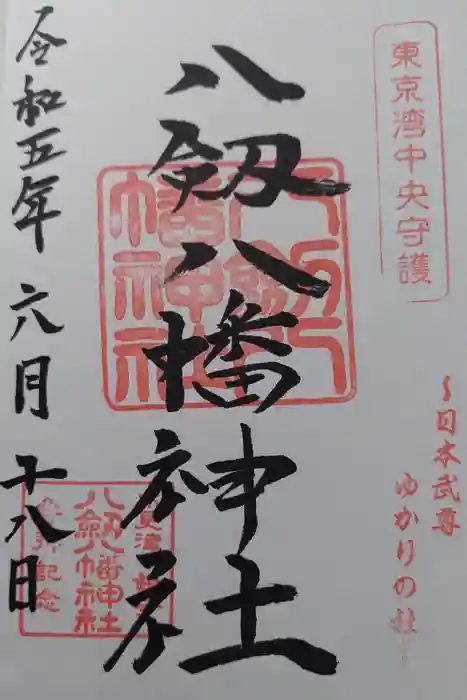 東京湾中央守護
~日本武尊
ゆかりの社~
八剱八幡神社
八剱八幡神社
八剱八幡神社
記念
令和五年六月十八日